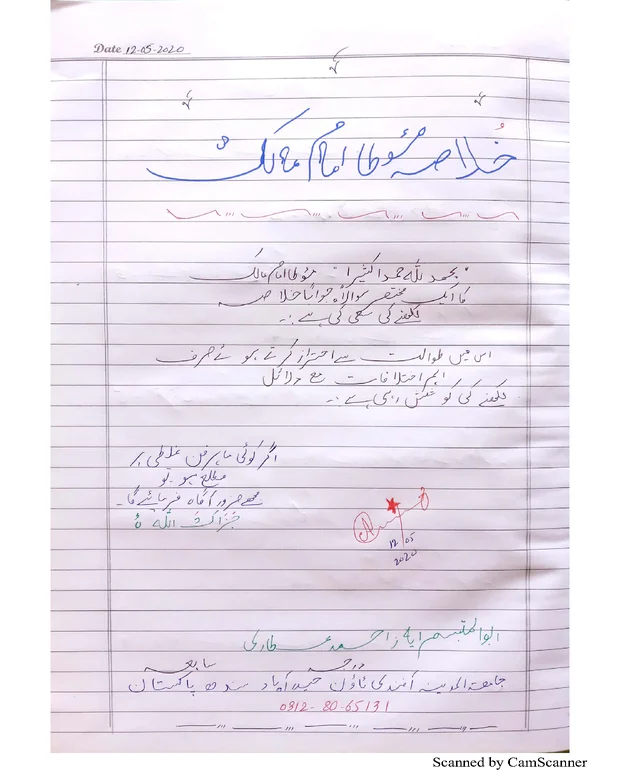 Date 12-05-2020
خُلاصہ مؤطا امام مالکؒ
بحمد للہ حمدا کثیرا مؤطا امام مالک
کا ایک مختصر سوالاً و جواباً خلاصہ
لکھنے کی سعی کی ہے :۔
اس میں طوالت سے احتراز کرتے ہوئے صرف
اہم اختلافات مع دلائل
لکھنے کی کوشش رہی ہے :۔
اگر کوئی ماہر فن غلطی پر
مطلع ہو تو
مجھے ضرور آگاہ فرمائے گا۔
جَزَاکَ اللّٰہ
12 05
2020
ابو المتبسم ایاز احمد عطاری
درجہ سابعہ
جامعۃ المدینہ آفندی ٹاؤن حیدرآباد سندھ پاکستان
0312-80-65131
Scanned by CamScanner